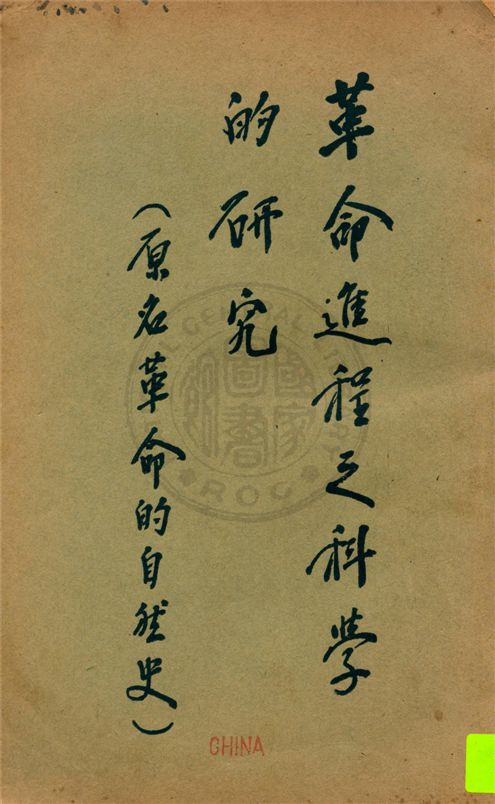 革命進程之科學
的研究
(原名革命的自然史)
CHINA